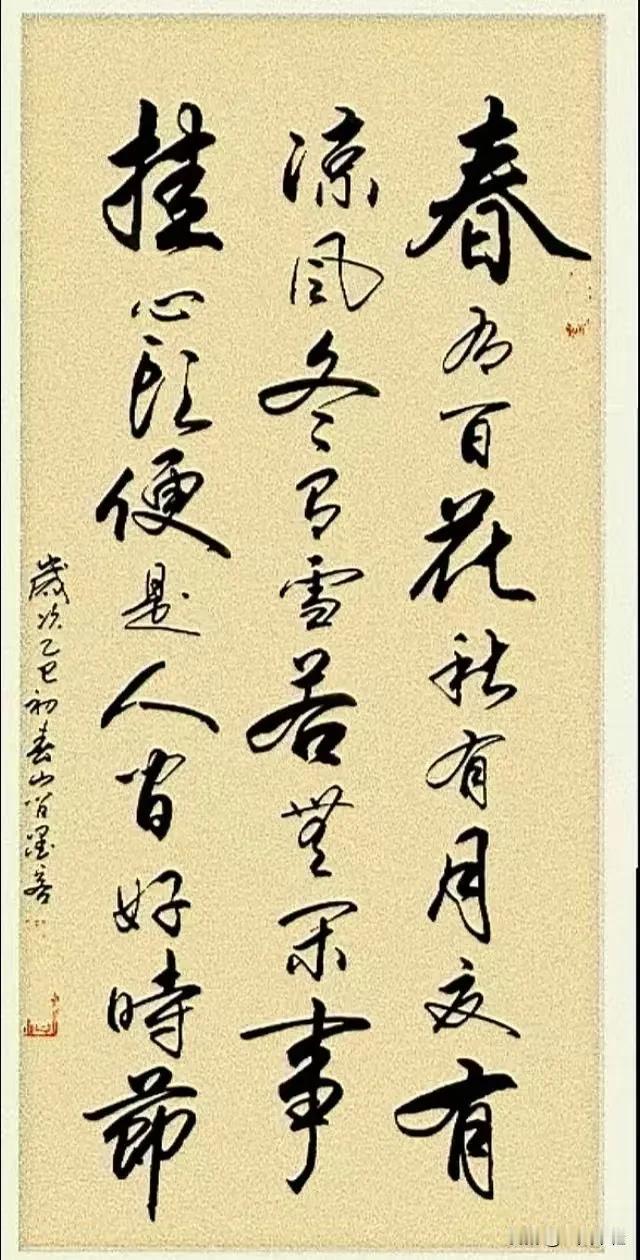 春有百花秋有月夏有
凉风冬有雪若無闲事
挂心頭便是人间好時節
歲次乙巳初春山间墨客